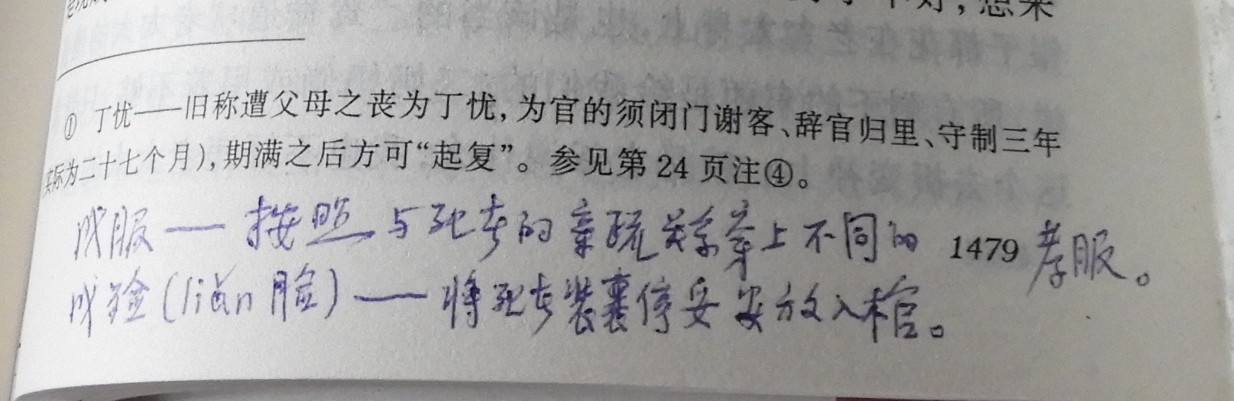 ，想来
① 丁忧——旧称遭父母之丧为丁忧，为官的须闭门谢客、辞官归里、守制三年
实际为二十七个月），期满之后方可“起复”。参见第 24 页注④。
成服——按照与死者的亲疏关系穿上不同的 1479 孝服。
成殓（liǎn 脸）——将死者装裹停妥安放入棺。